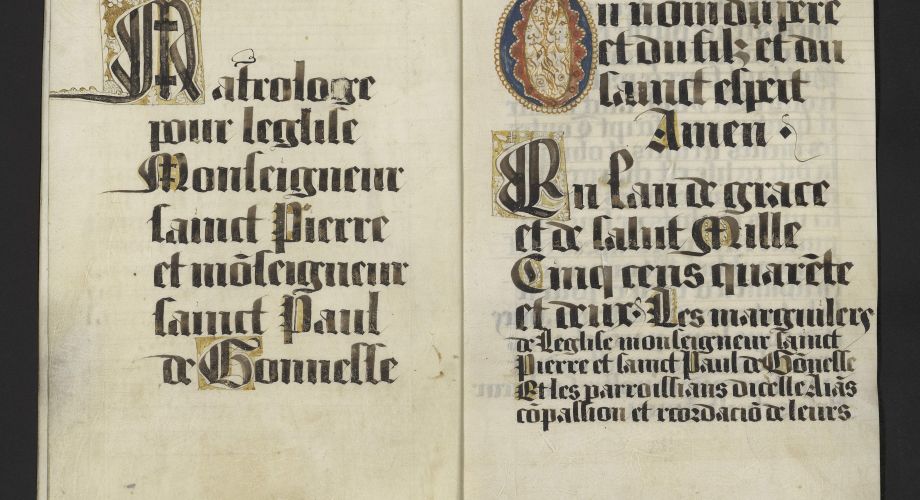 Matrologe
pour leglise
Monseigneur
sainct Pierre
et mōseigneur
sainct Paul
de Gonnesse
Ou nom du pere
et du filz et du
sainct esprit
Amen.
En lan de grace
et de salut Mille
Cinq cens quarēte
et deux. Les marguilers
de Leglise monseigneur sainct
Pierre et sainct Paul de Gōnesse
Et les parroissians dicelle Aiās
cōpassion et recordaciō de leurs